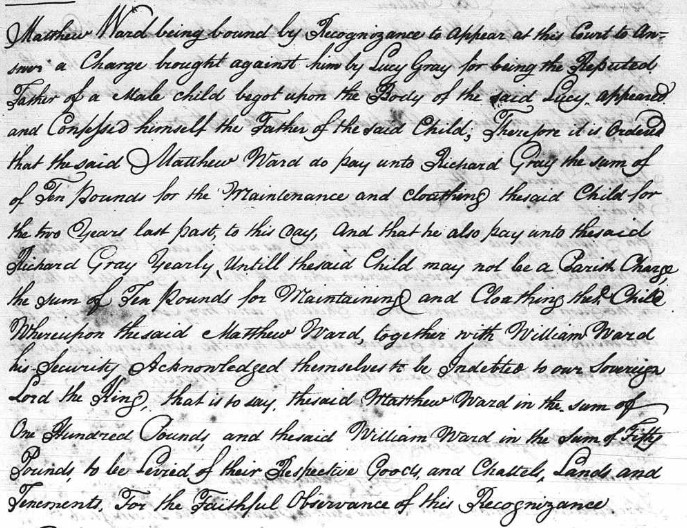 Matthew Ward being bound by Recognizance to Appear at this Court to An=
swer a Charge brought against him by Lucy Gray for being the Reputed
Father of a Male child begot upon the Body of the said Lucy appeared
and Confess'd himself the Father of the said Child; Therefore it is Ordered
that the said Matthew Ward do pay unto Richard Gray the sum of
of Ten Pounds for the Maintenance and cloathing the said Child for
the two Years last past, to this Day, And that he also pay unto the said
Richard Gray Yearly, Untill the said Child may not be a Parish Charge
the sum of Ten Pounds for Maintaining and Cloathing the sd. Child
Whereupon the said Matthew Ward, together with William Ward
his Security Acknowledged themselves to be Indebted to our Sovereign
Lord the King, that is to say, the said Matthew Ward in the sum of
One Hundred Pounds, and the said William Ward in the sum of Fifty
Pounds, to be Levied of their Respective Goods, and Chattels, Lands and
Tenements, For the Faithful Observance of this Recognizance.